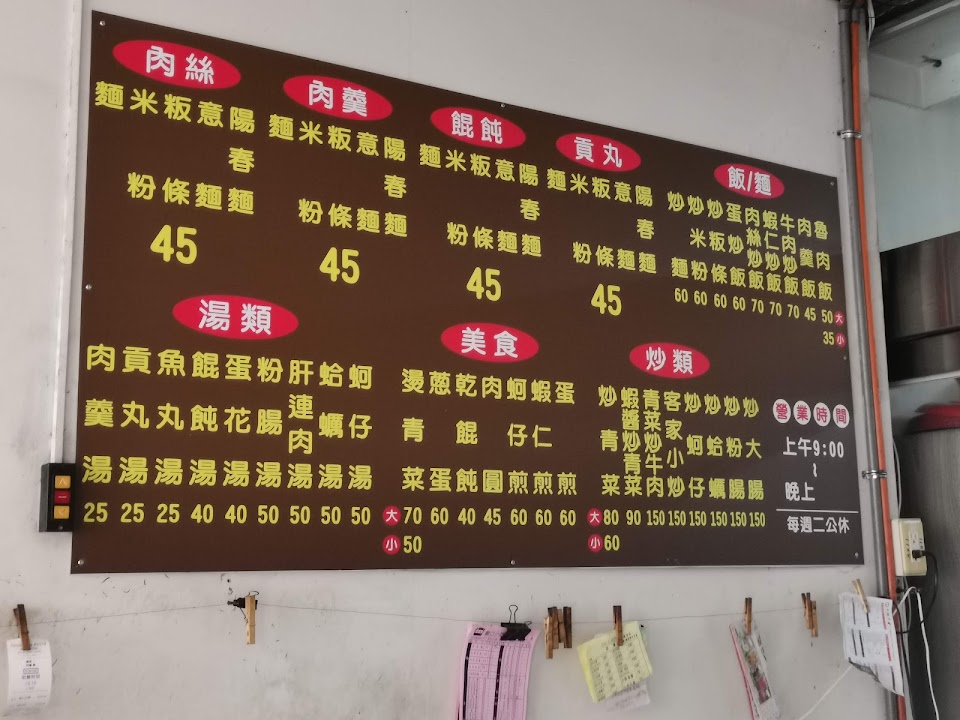 肉絲
麵 米粉 粄條 意麵 陽春麵
45
肉羹
麵 米粉 粄條 意麵 陽春麵
45
餛飩
麵 米粉 粄條 意麵 陽春麵
45
貢丸
麵 米粉 粄條 意麵 陽春麵
45
飯/麵
炒麵 60
炒米粉 60
炒粄條 60
蛋炒飯 60
肉絲炒飯 70
蝦仁炒飯 70
牛肉炒飯 70
肉羹飯 45
魯肉飯 50大 35小
湯類
肉羹湯 25
貢丸湯 25
魚丸湯 25
餛飩湯 40
蛋花湯 40
粉腸湯 50
肝連肉湯 50
蛤蠣湯 50
蚵仔湯 50
美食
燙青菜 大70 小50
蔥蛋 60
乾餛飩 40
肉圓 45
蚵仔煎 60
蝦仁煎 60
蛋煎 60
炒類
炒青菜 大80 小60
蝦醬炒青菜 90
青菜炒牛肉 150
客家小炒 150
炒蚵仔 150
炒蛤蠣 150
炒粉腸 150
炒大腸 150
營業時間
上午9:00
~
晚上
每週二公休